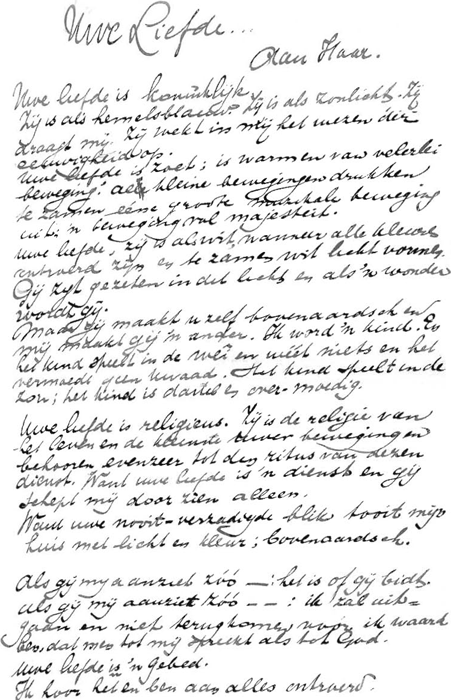 Uwe Liefde...
Aan Haar.
Uwe liefde is koninklijk.
Zij is als hemelsblauw. Zij is als zonlicht. Zij
draagt mij. Zij wekt in mij het wezen der
eeuwigheid op.
Uwe liefde is zoet; is warmen van velerlei
beweging. Alle kleine bewegingen drukken
te zamen ééne groote muzikale beweging
uit: 'n beweging vol majesteit.
Uwe liefde, zij is als wit, wanneer alle kleuren
ontroerd zijn en te zamen wit licht vormen.
Gij zijt gezeten in dit licht en als 'n wonder
wordt gij.
Maar gij maakt u zelf bovenaardsch en
mij maakt gij 'n ander. Ik word 'n kind. En
het kind speelt in de wei en wéét niets en het
vermoedt geen kwaad. Het kind speelt in de
zon; het kind is dartel en over-moedig.
Uwe liefde is religieus. Zij is de religie van
het leven en de kleinste uwer bewegingen
behooren evenzeer tot den ritus van dezen
dienst. Want uwe liefde is 'n dienst en gij
schept mij door zien alleen.
Want uwe nooit-verzadigde blik tooit mijn
huis met licht en kleur; bovenaardsch.
Als gij mij aanziet zóó —: het is of gij bidt.
Als gij mij aanziet zóó — —: ik zal uit=
gaan en niet terugkomen vóór ik waard
ben, dat men tot mij spreekt als tot God.
Uwe liefde is 'n gebed.
Ik hoor het en ben aan alles ontroerd.